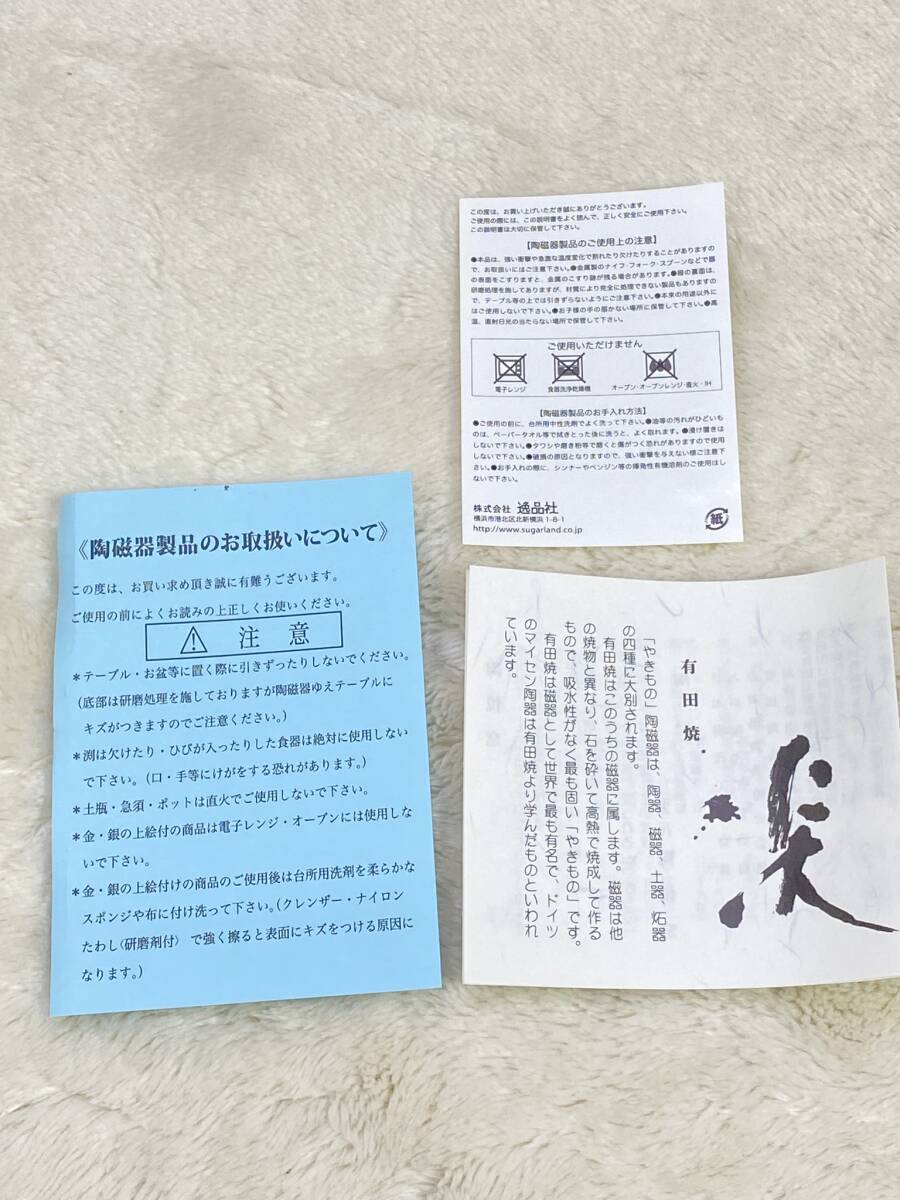 この度は、お買い上げいただき誠にありがとうございます。
ご使用の際には、この説明書をよく読んで、正しく安全にご使用下さい。
この説明書は大切に保管して下さい。
【陶磁器製品のご使用上の注意】
●本品は、強い衝撃や急激な温度変化で割れたり欠けたりすることがありますの
で、お取扱いにはご注意下さい。●金属製のナイフ・フォーク・スプーンなどで器
の表面をこすりますと、金属のこすり跡が残る場合があります。●器の裏面は、
研磨処理を施してありますが、材質により完全に処理できない製品もありますの
で、テーブル等の上では引きずらないようにご注意下さい。●本来の用途以外に
はご使用しないで下さい。●お子様の手の届かない場所に保管して下さい。●高
温、直射日光の当たらない場所で保管して下さい。
ご使用いただけません
電子レンジ 食器洗浄乾燥機 オーブン・オーブンレンジ・直火・IH
【陶磁器製品のお手入れ方法】
●ご使用の前に、台所用中性洗剤でよく洗って下さい。●油等の汚れがひどいい
ものは、ペーパータオル等で拭きとった後に洗うと、よく取れます。●浸け置きは
しないで下さい。●タワシや磨き粉等で磨くと傷がつく恐れがありますので使用
しないで下さい。●破損の原因となりますので、強い衝撃を与えない様ご注意下
さい。●お手入れの際に、シンナーやベンジン等の揮発性有機溶剤のご使用はし
ないで下さい。
株式会社 逸品社
横浜市港北区北新横浜 1-8-1
http://www.sugarland.co.jp
紙
《陶磁器製品のお取扱いについて》
この度は、お買い求め頂き誠に有難うございます。
ご使用の前によくお読みの上正しくお使いください。
注 意
＊テーブル・お盆等に置く際に引きずったりしないでください。
(底部は研磨処理を施しておりますが陶磁器ゆえテーブルに
キズがつきますのでご注意ください。)
＊渕は欠けたり・ひびが入ったりした食器は絶対に使用しない
で下さい。(口・手等にけがをする恐れがあります。)
＊土瓶・急須・ポットは直火でご使用しないで下さい。
＊金・銀の上絵付の商品は電子レンジ・オーブンには使用しな
いで下さい。
＊金・銀の上絵付けの商品のご使用後は台所用洗剤を柔らかな
スポンジや布に付け洗って下さい。(クレンザー・ナイロン
たわし〈研磨剤付〉 で強く擦ると表面にキズをつける原因に
なります。)
有田焼
「やきもの」陶磁器は、陶器、磁器、土器、炻器
の四種に大別されます。
有田焼はこのうちの磁器に属します。磁器は他
の焼物と異なり、石を砕いて高熱で焼成して作る
もので、吸水性がなく最も固い「やきもの」です。
有田焼は磁器として世界で最も有名で、ドイツ
のマイセン陶器は有田焼より学んだものといわれ
ています。